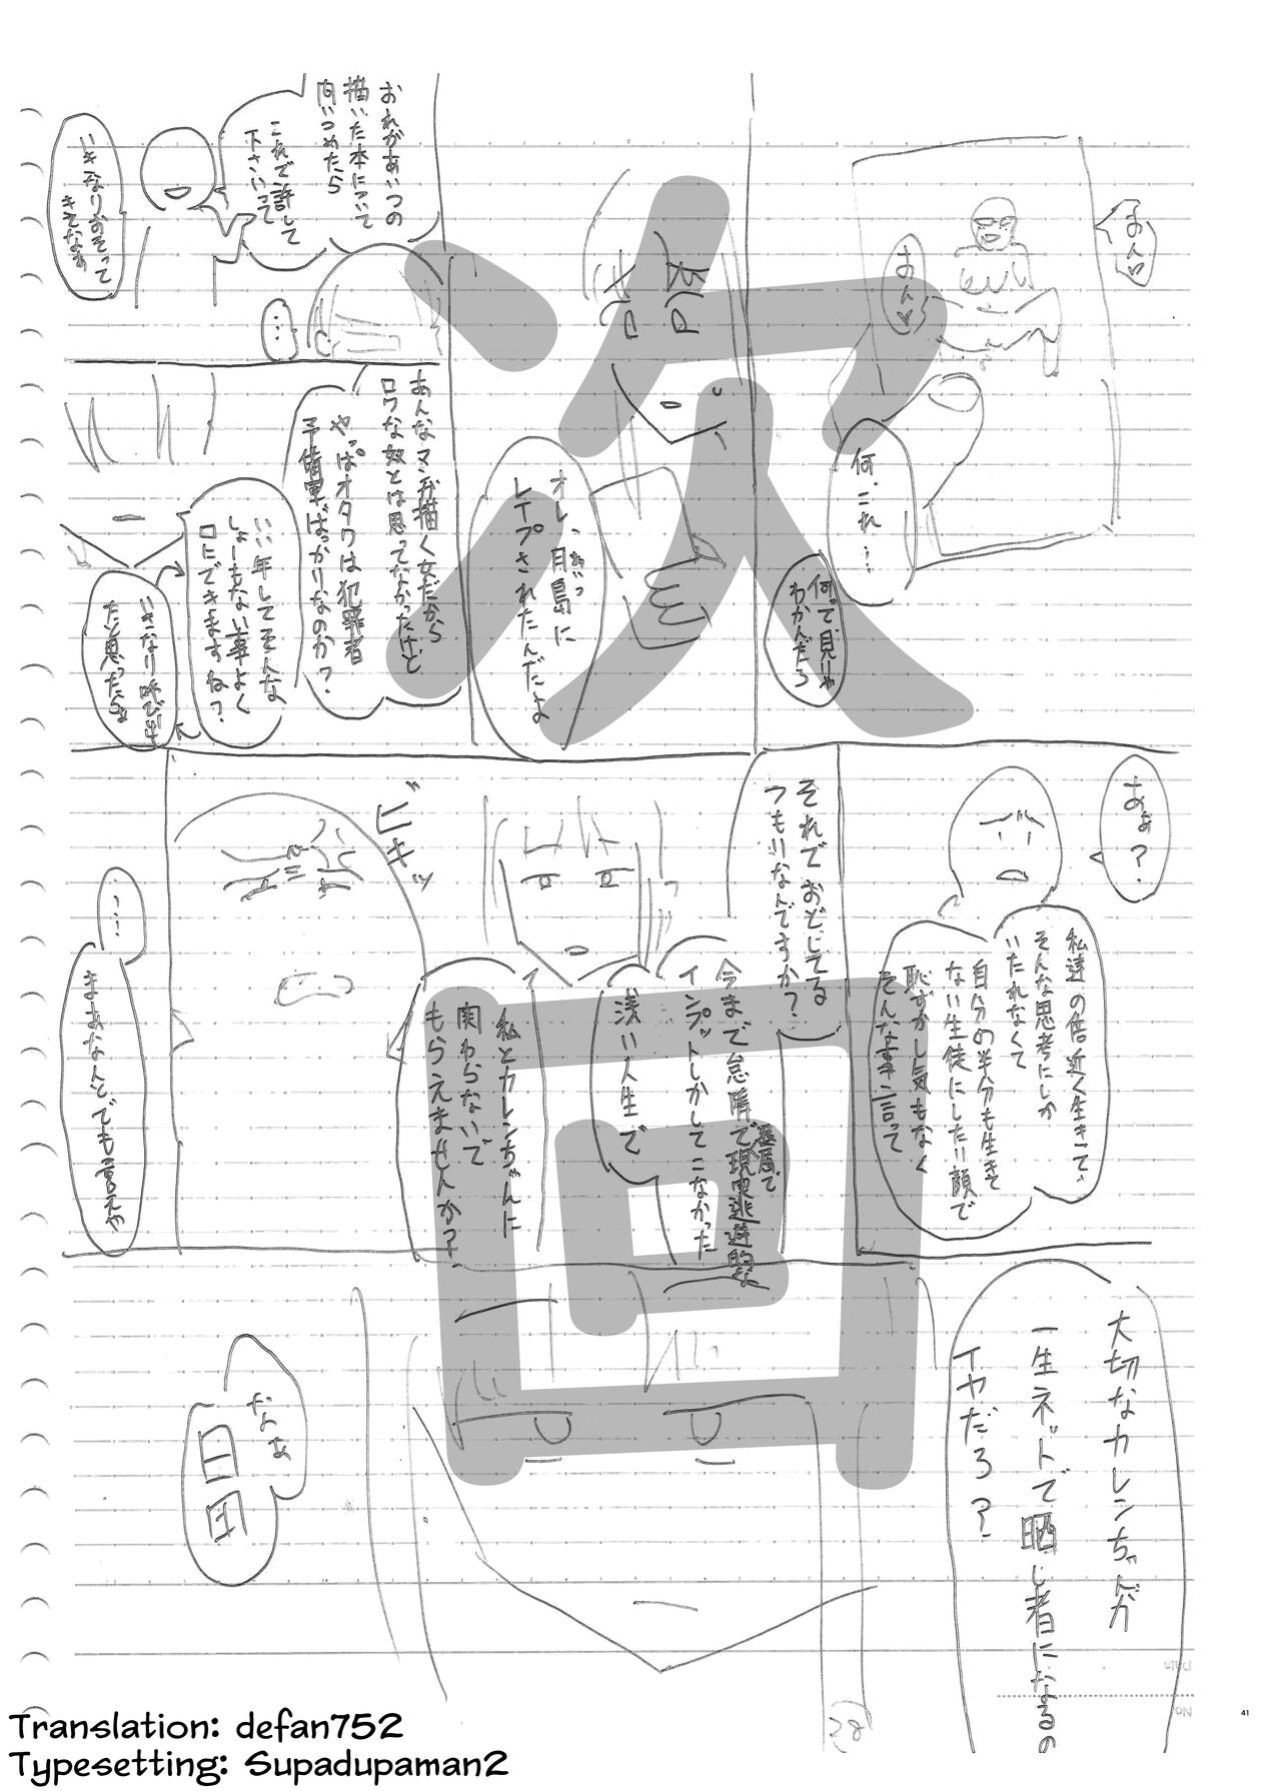 あん♡
あん♡
何、これ…
何って見りゃ
わかんだろ
オレ、月島に
レイプされたんだよ
おれがあいつの
描いた本について
問いつめたら
これで許して
下さいって
いきなりおそって
きてなぁ
…
あんなマンガ描く女だから
ロクな奴とは思ってなかったけど
やっぱオタクは犯罪者
予備軍ばっかりなのか？
いい年してそんな
しょーもない事よく
口にできますね？
いきなり呼び出し
たと思ったらぁ
あぁ？
私達の倍近く生きて、
そんな思考にしか
いたれなくて
自分の半分も生きて
ない生徒にしたり顔で
恥ずかし気もなく
そんな事言って
それでおどしてる
つもりなんですか？
今まで怠惰で
現実逃避的な
インプットしかしてこなかった
浅い人生で
私とカレンちゃんに
関わらないで
もらえませんか？
ビキッ
…
まぁなんとでも言えや
大切なカレンちゃんが
一生ネットで晒し者になるの
イヤだろ？
なぁ
次回
28
41
Translation: defan752
Typesetting: Supadupaman2